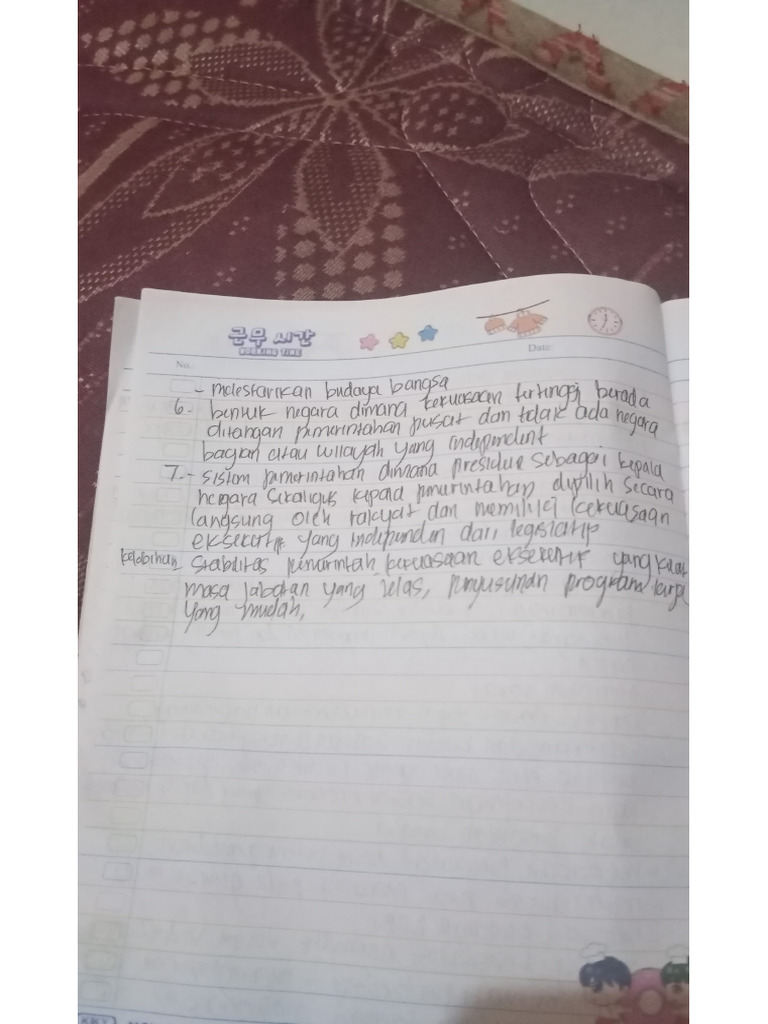 근무 시간
WORKING TIME
No.
Date:
- melestarikan budaya bangsa
6. - bentuk negara dimana kekuasaan tertinggi berada
ditangan pemerintahan pusat dan tidak ada negara
bagian atau wilayah yang independent
7. - Sistem pemerintahan dimana presiden sebagai kepala
negara sekaligus kepala pemerintahan dipilih secara
langsung oleh rakyat dan memiliki kekuasaan
eksekutif yang independen dari legislatif
kelebihan Stabilitas pemerintah kekuasaan eksekutif yang kuat
masa jabatan yang jelas, penyusunan program kerja
yang mudah,